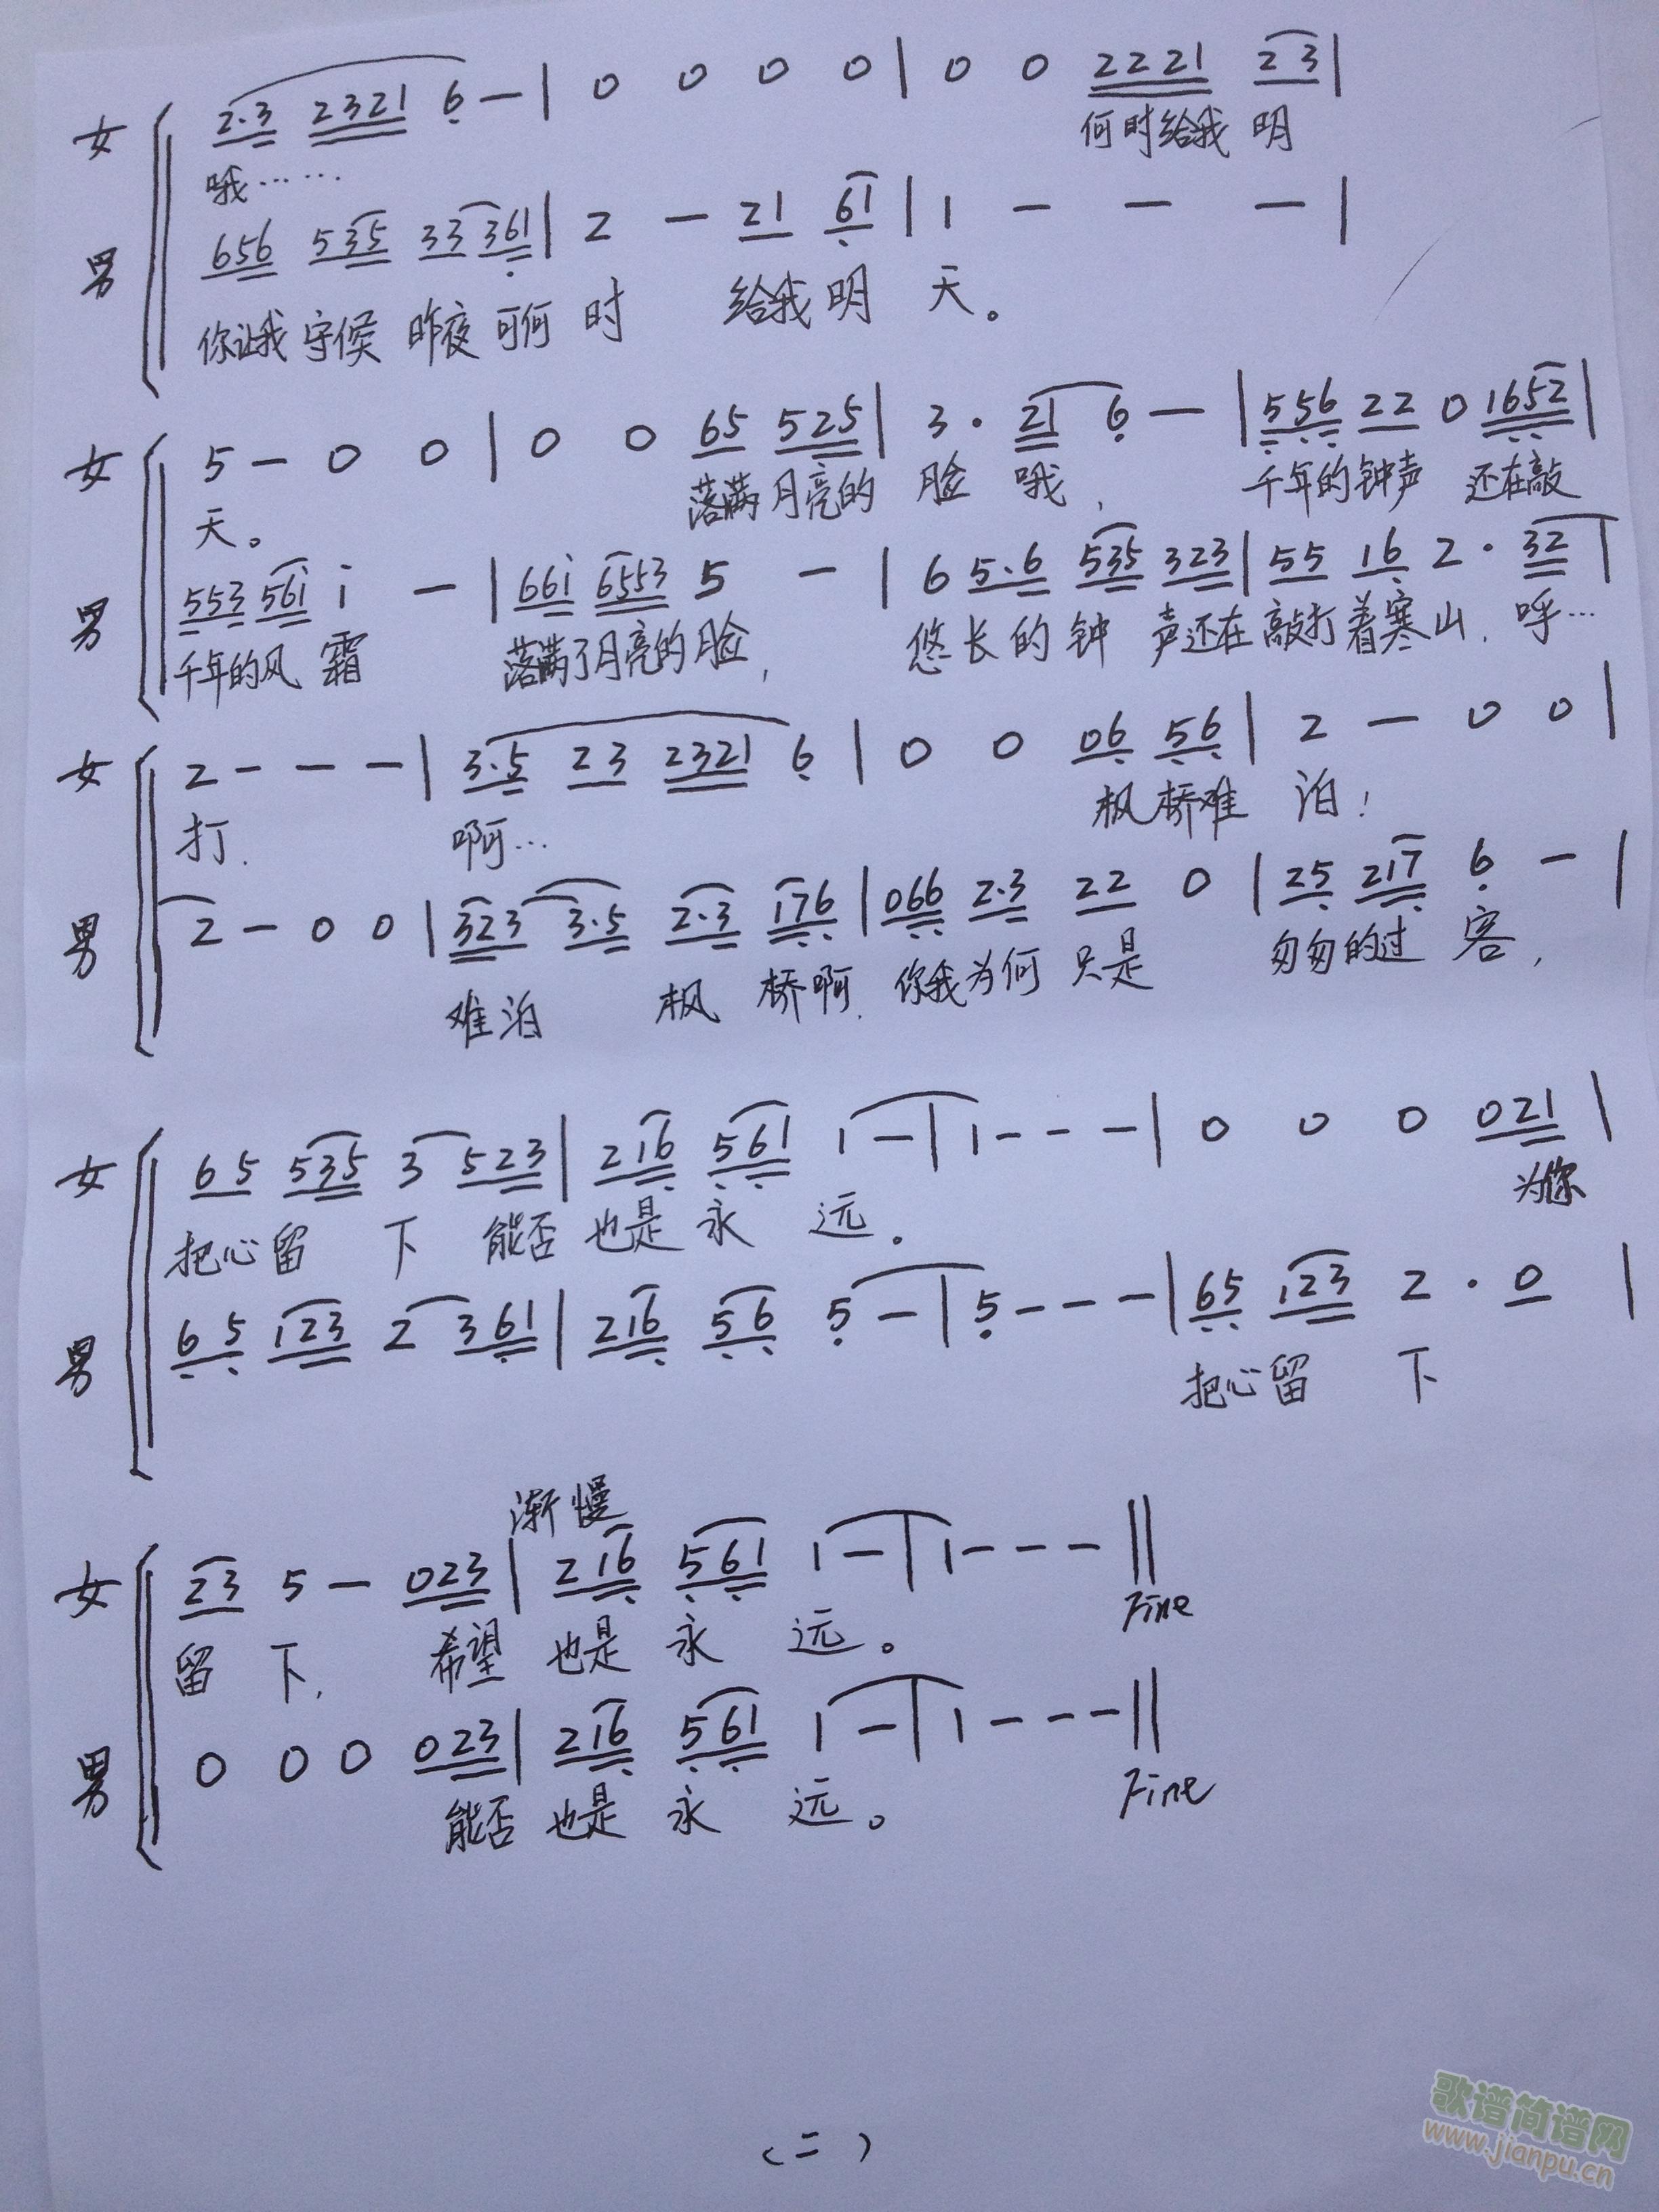 女 2·3 2321 6 — | 0 0 0 0 | 0 0 2221 23 |
哦…… 何时给我 明
男 656 535 33 361 | 2 — 21 61 | 1 — — — |
你让我 守候 昨夜 可何 时 给我 明 天。
女 5 — 0 0 | 0 0 65 525 | 3 · 21 6 — | 556 22 0 1652 |
天。 落满 月亮的 脸 哦, 千年的 钟声 还在敲
男 553 561 i — | 66i 6553 5 — | 6 5·6 535 323 | 55 16 2 · 32 |
千年的风 霜 落满了月亮的 脸, 悠 长 的 钟 声还在 敲打 着寒 山. 呼…
女 2 - - - | 3·5 23 2321 6 | 0 0 06 56 | 2 — 0 0 |
打. 啊… 枫 桥难 泊!
男 2 - 0 0 | 323 3·5 2·3 176 | 066 2·3 22 0 | 25 217 6 — |
难泊 枫 桥啊. 你我 为何 只是 匆匆的过 客,
女 65 535 3 523 | 216 561 1 — | 1 - - - | 0 0 0 021 |
把心留 下 能否 也是 永 远。 为你
男 65 123 2 361 | 216 56 5 — | 5 - - - | 65 123 2 · 0 |
把心留 下
渐慢
女 23 5 — 023 | 216 561 1 — | 1 - - - ||
留 下, 希望 也是 永 远。 Fine
男 0 0 0 023 | 216 561 1 — | 1 - - - ||
能否 也是 永 远。 Fine
(二)
歌谱简谱网
www.jianpu.cn